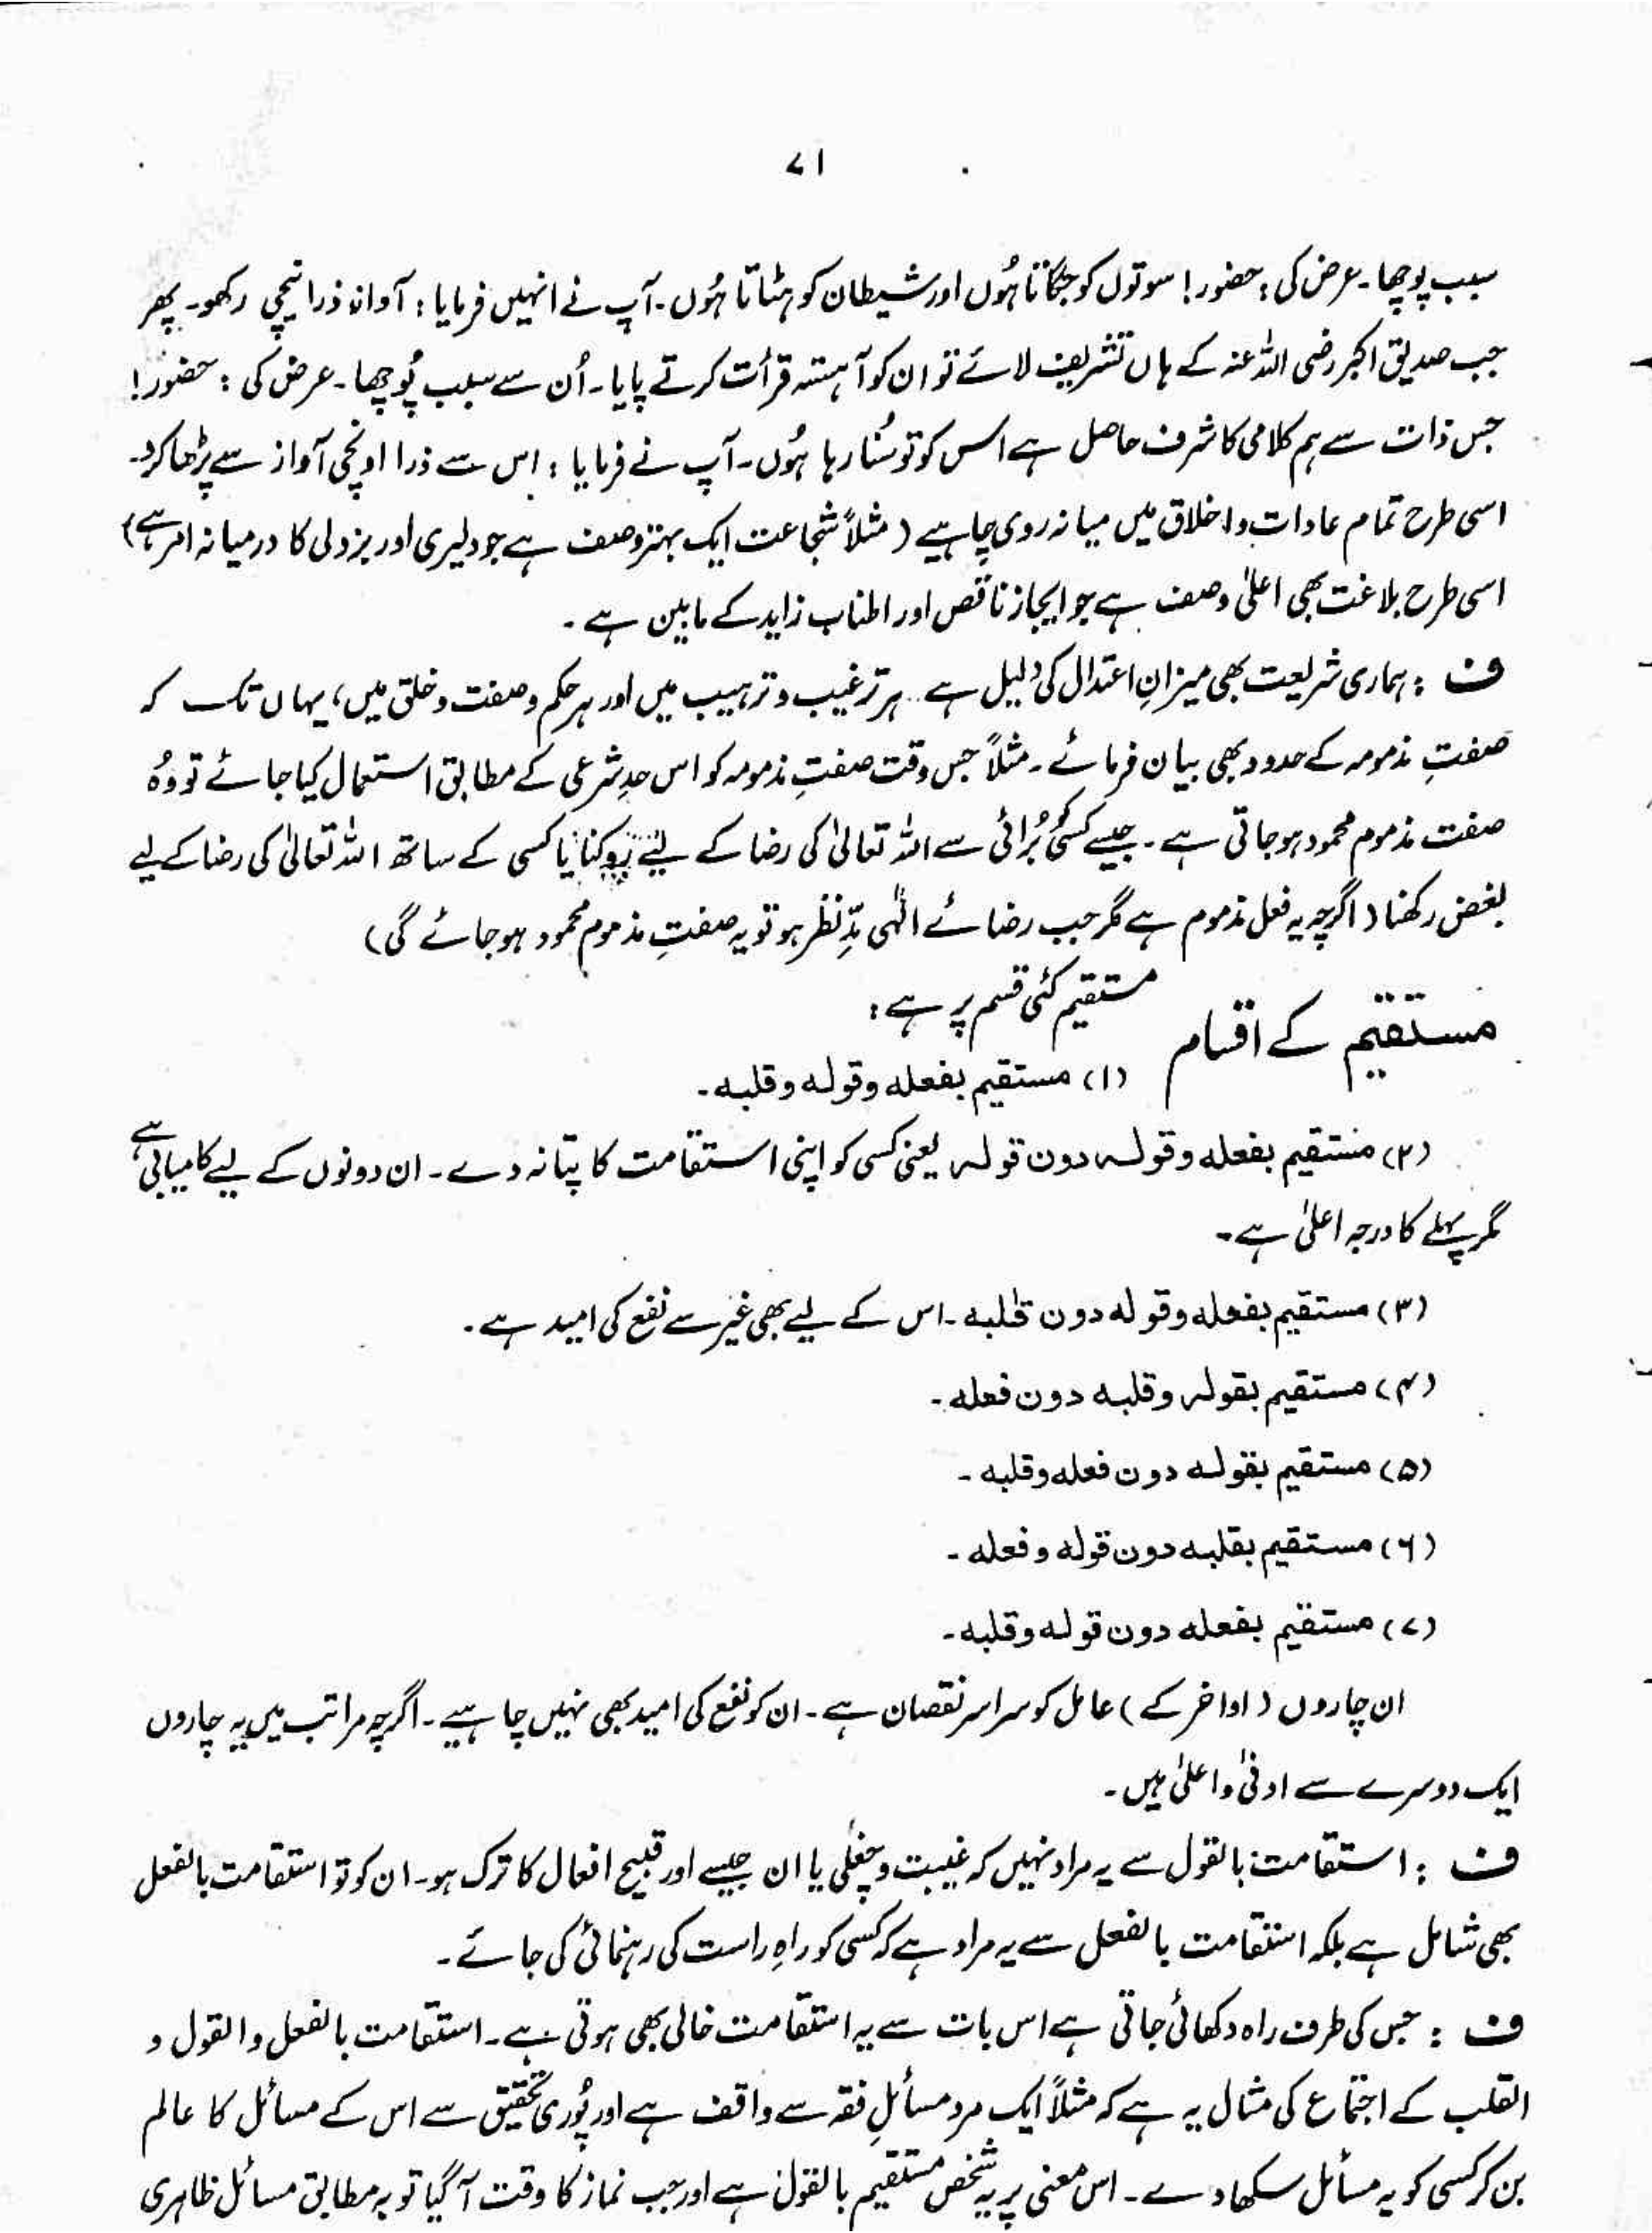 ۷۱
سبب پوچھا۔ عرض کی: حضور! سوتوں کو جگاتا ہُوں اور شیطان کو ہٹاتا ہُوں۔ آپ نے انہیں فرمایا: آواز ذرا نیچی رکھو۔ پھر
جب صدیق اکبر رضی اللہ عنہ کے ہاں تشریف لائے تو ان کو آہستہ قرأت کرتے پایا۔ اُن سے سبب پُوچھا۔ عرض کی: حضور!
جس ذات سے ہم کلامی کا شرف حاصل ہے اس کو تو سُنا رہا ہُوں۔ آپ نے فرمایا: اس سے ذرا اونچی آواز سے پڑھا کرو۔
اسی طرح تمام عادات و اخلاق میں میانہ روی چاہیے (مثلاً شجاعت ایک بہتر وصف ہے جو دلیری اور بزدلی کا درمیانہ امر ہے)
اسی طرح بلاغت بھی اعلیٰ وصف ہے جو ایجاز ناقص اور اطناب زاید کے مابین ہے۔
ف: ہماری شریعت بھی میزانِ اعتدال کی دلیل ہے۔ ہر ترغیب و ترہیب میں اور ہر حکم و صفت و خلق میں، یہاں تک کہ
صفتِ مذمومہ کے حدود بھی بیان فرمائے۔ مثلاً جس وقت صفتِ مذمومہ کو اس حدِ شرعی کے مطابق استعمال کیا جائے تو وُہ
صفت مذموم محمود ہو جاتی ہے۔ جیسے کسی کو بُرائی سے اللہ تعالیٰ کی رضا کے لیے روکنا یا کسی کے ساتھ اللہ تعالیٰ کی رضا کے لیے
بغض رکھنا (اگرچہ یہ فعل مذموم ہے مگر جب رضائے الٰہی مدِّ نظر ہو تو یہ صفتِ مذموم محمود ہو جائے گی)
مستقیم کے اقسام
مستقیم کئی قسم پر ہے:
(۱) مستقیم بفعله وقوله وقلبه۔
(۲) مستقیم بفعله وقوله دون قوله یعنی کسی کو اپنی استقامت کا پتا نہ دے۔ ان دونوں کے لیے کامیابی ہے
مگر پہلے کا درجہ اعلیٰ ہے۔
(۳) مستقیم بفعله وقوله دون قلبه۔ اس کے لیے بھی غیر سے نفع کی امید ہے۔
(۴) مستقیم بقوله وقلبه دون فعله۔
(۵) مستقیم بقوله دون فعله وقلبه۔
(۶) مستقیم بقلبه دون قوله وفعله۔
(۷) مستقیم بفعله دون قوله وقلبه۔
ان چاروں (اواخر کے) عامل کو سراسر نقصان ہے۔ ان کو نفع کی امید بھی نہیں چاہیے۔ اگرچہ مراتب میں یہ چاروں
ایک دوسرے سے ادنیٰ و اعلیٰ ہیں۔
ف: استقامت بالقول سے یہ مراد نہیں کہ غیبت و چغلی یا ان جیسے اور قبیح افعال کا ترک ہو۔ ان کو تو استقامت بالفعل
بھی شامل ہے بلکہ استقامت بالفعل سے یہ مراد ہے کہ کسی کو راہِ راست کی رہنمائی کی جائے۔
ف: جس کی طرف راہ دکھائی جاتی ہے اس بات سے یہ استقامت خالی بھی ہوتی ہے۔ استقامت بالفعل والقول و
القلب کے اجتماع کی مثال یہ ہے کہ مثلاً ایک مرد مسائلِ فقہ سے واقف ہے اور پُوری تحقیق سے اس کے مسائل کا عالم
بن کر کسی کو یہ مسائل سکھا دے۔ اس معنی پر یہ شخص مستقیم بالقول ہے اور جب نماز کا وقت آ گیا تو بہ مطابق مسائل ظاہری